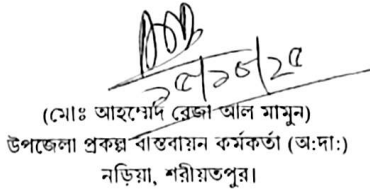 ১৫/১০/২৫
(মোঃ আহম্মেদ রেজা আল মামুন)
উপজেলা প্রকল্প বাস্তবায়ন কর্মকর্তা (অ:দা:)
নড়িয়া, শরীয়তপুর।